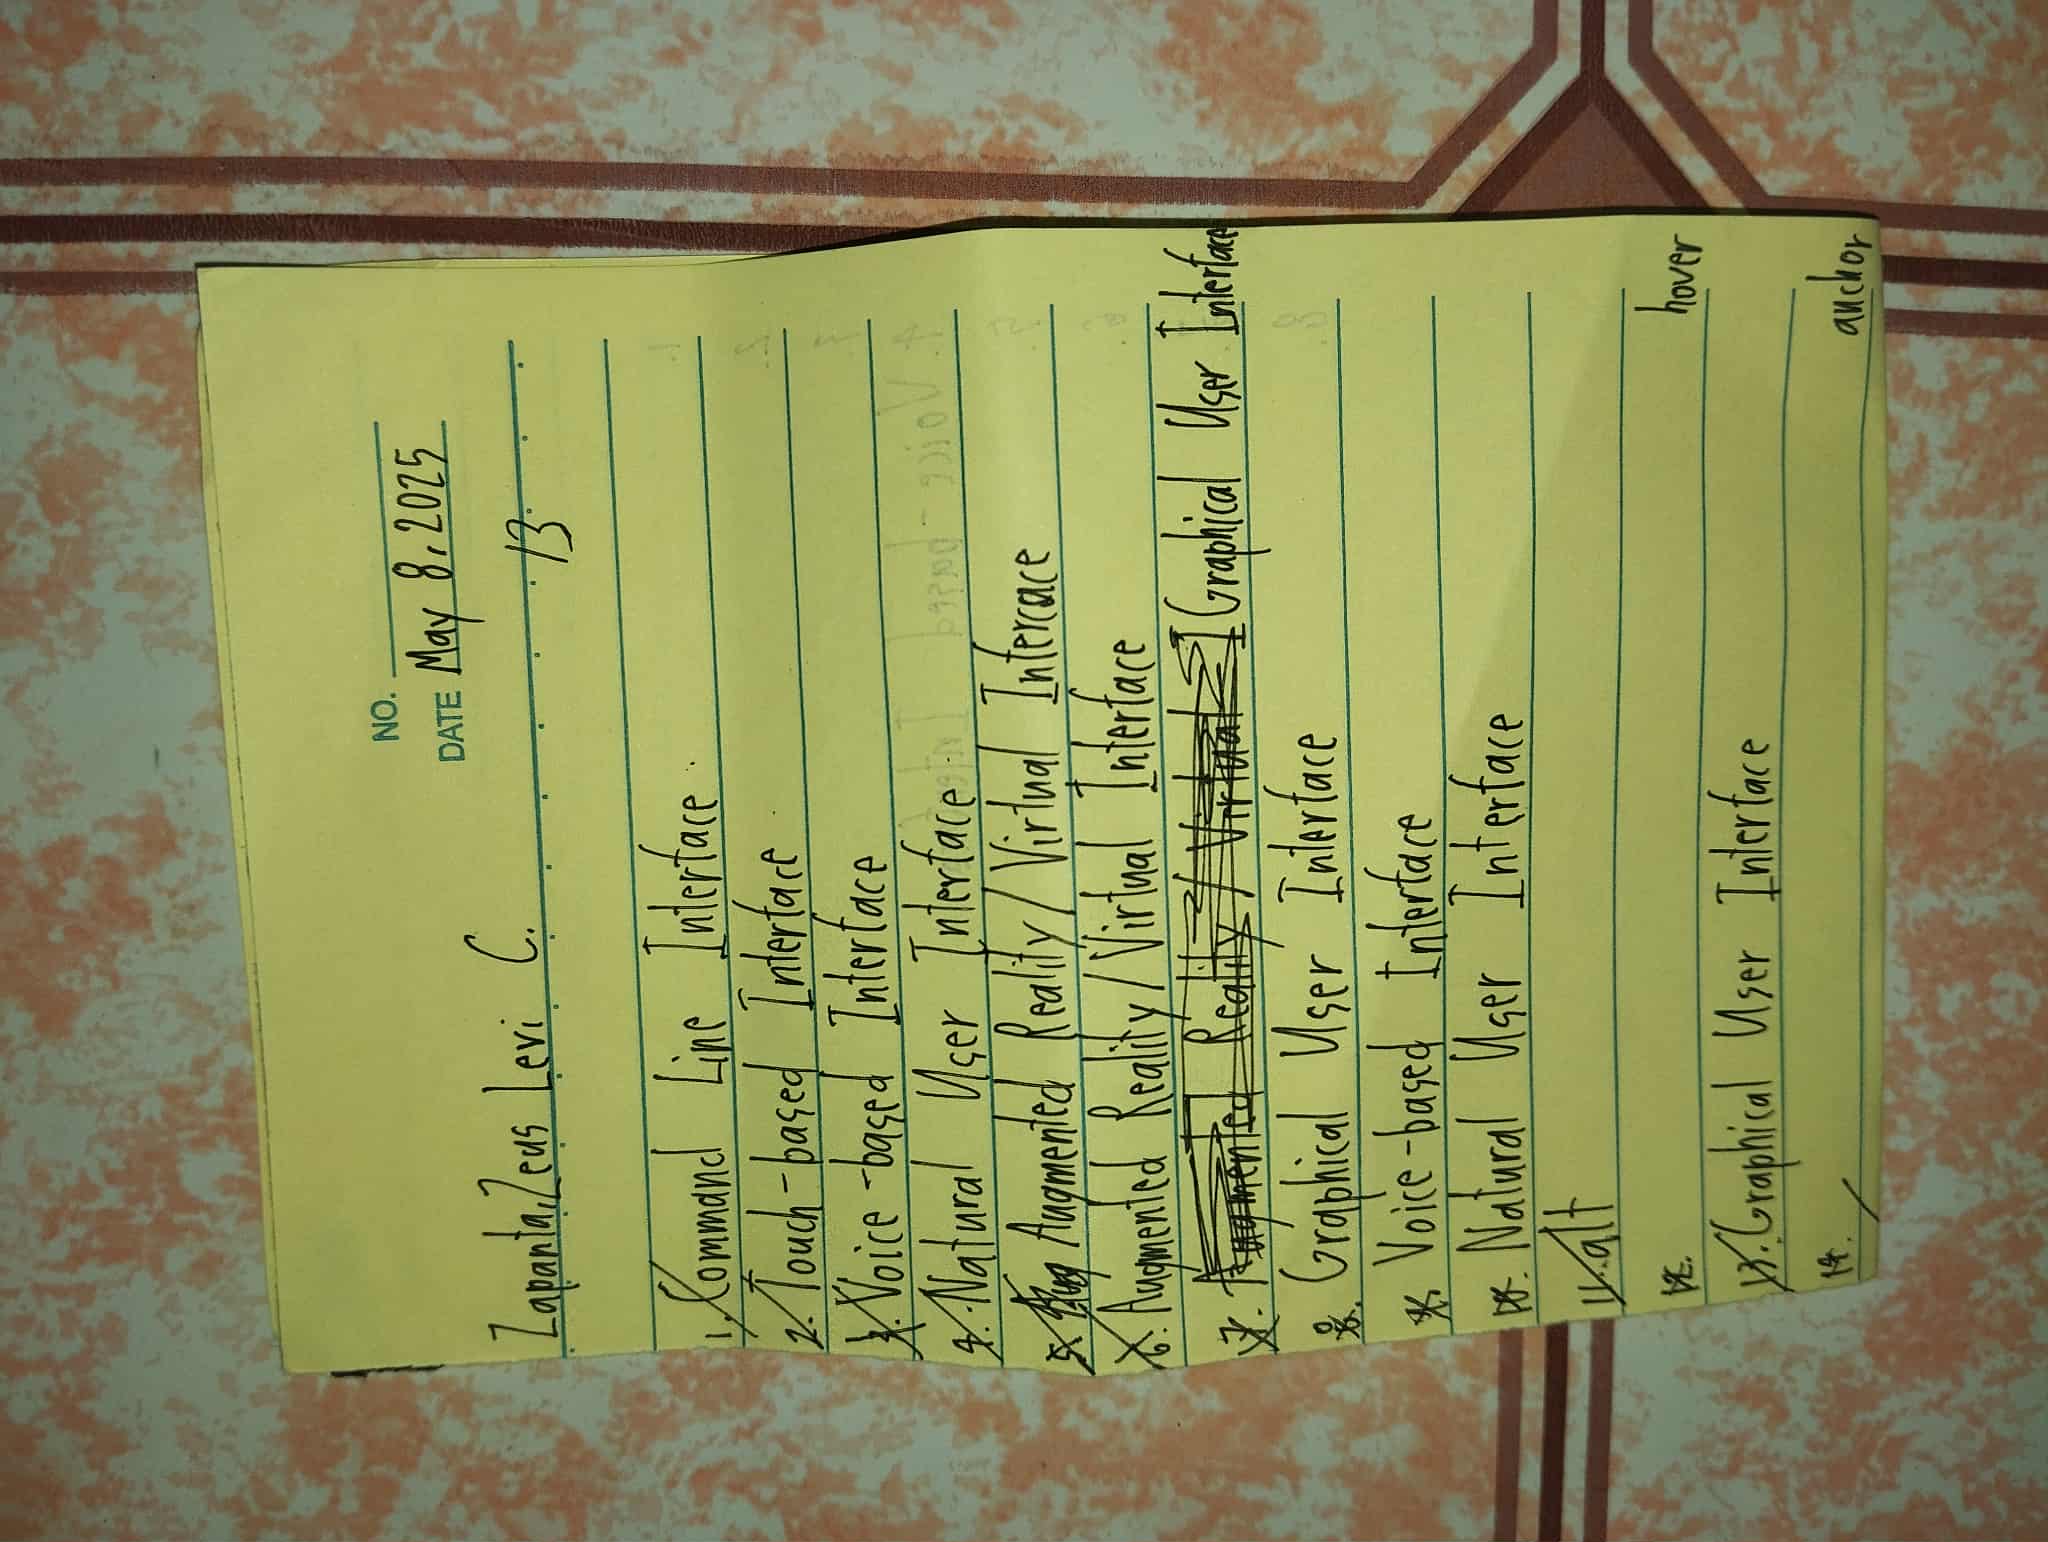 NO.
DATE May 8, 2025
Zapanta, Zeus Levi C. 13
1. Command Line Interface
2. Touch-based Interface
3. Voice-based Interface
4. Natural User Interface
5. Aug Augmented Reality/Virtual Intercace
6. Augmented Reality/Virtual Interface
7. Augmented Reality/Virtual I Graphical User Interface
8. Graphical User Interface
9. Voice-based Interface
10. Natural User Interface
11. alt
12. hover
13. Graphical User Interface
14. anchor